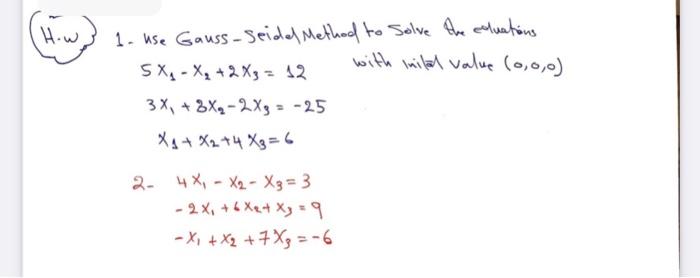 H.w 1- use Gauss-Seidel Method to Solve the equations
5X₁ - X₂ + 2X₃ = 12 with inital value (0,0,0)
3X₁ + 8X₂ - 2X₃ = -25
X₁ + X₂ + 4X₃ = 6
2- 4X₁ - X₂ - X₃ = 3
-2X₁ + 6X₂ + X₃ = 9
-X₁ + X₂ + 7X₃ = -6